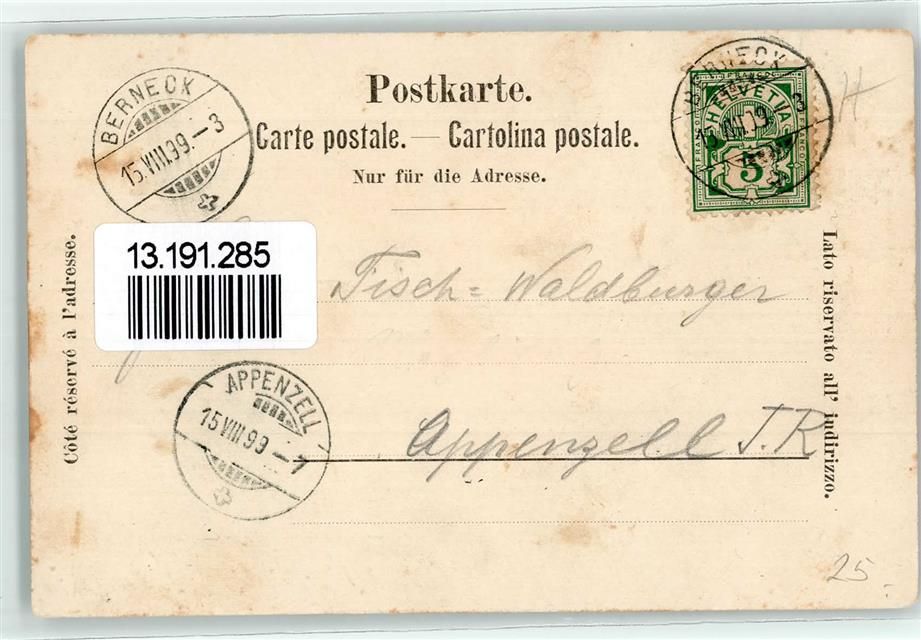 Postkarte.
Carte postale. — Cartolina postale.
Nur für die Adresse.
BERNECK
15.VIII.99.–3
BERNECK
15.VIII.99
3
FRANCO
HELVETIA
5
13.191.285
Côté réservé à l'adresse.
Lato riservato all' indirizzo.
Fisch=Waldburger
APPENZELL
15.VIII.99.–7
Appenzell I.R
25.